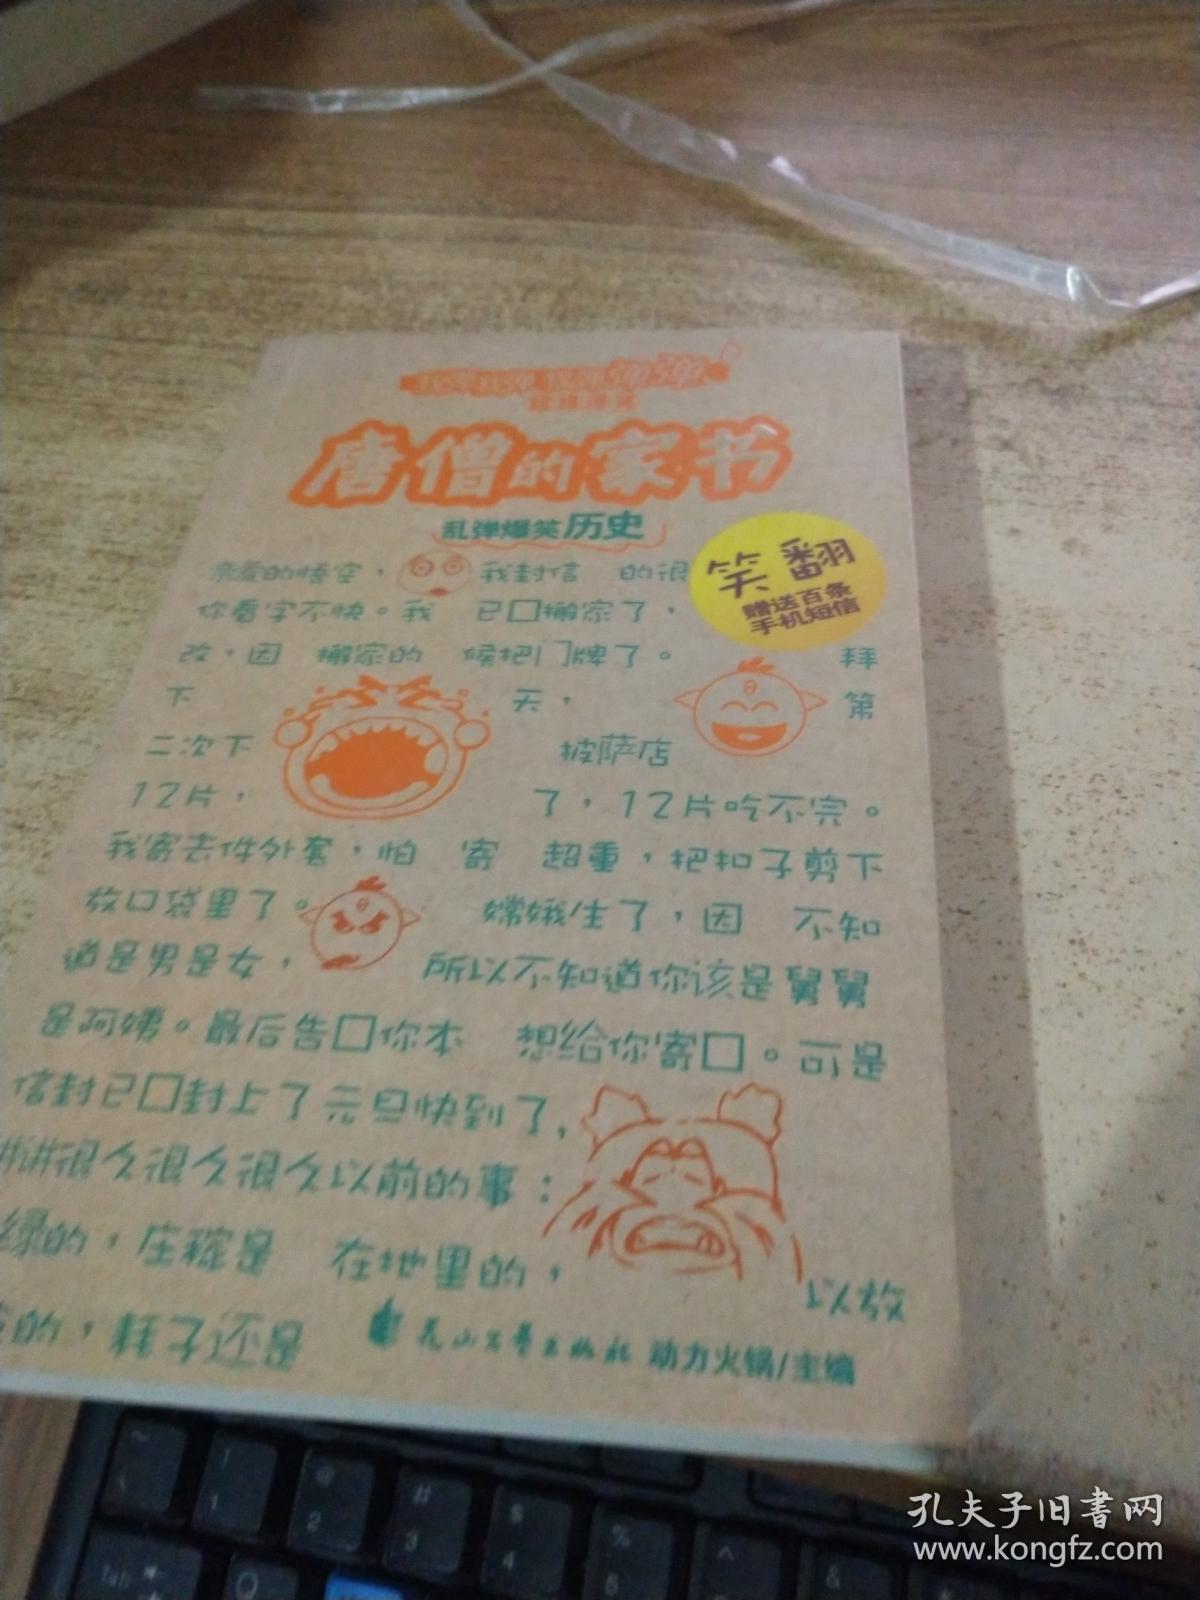 我弹我弹 我弹弹弹
唐僧的家书
乱弹爆笑历史
笑翻
赠送百条
手机短信
亲爱的悟空，我封信 的很
你看字不快。我 已口搬家了，
改，因 搬家的 候把门牌了。 拜
下 天， 第
二次下 披萨店
12片， 了，12片吃不完。
我寄去件外套，怕 寄 超重，把扣子剪下
放口袋里了。 嫦娥生了，因 不知
道是男是女， 所以不知道你该是舅舅
是阿姨。最后告口你本 想给你寄口。可是
信封已口封上了元旦快到了，
讲讲很久很久很久以前的事：
绿的，庄稼是 在地里的， 以放
的，耗子还是
花山文艺出版社 动力火锅/主编
~ ! @ # $ % ^
1 2 3 4 5 6
tab Q
孔夫子旧书网
www.kongfz.com